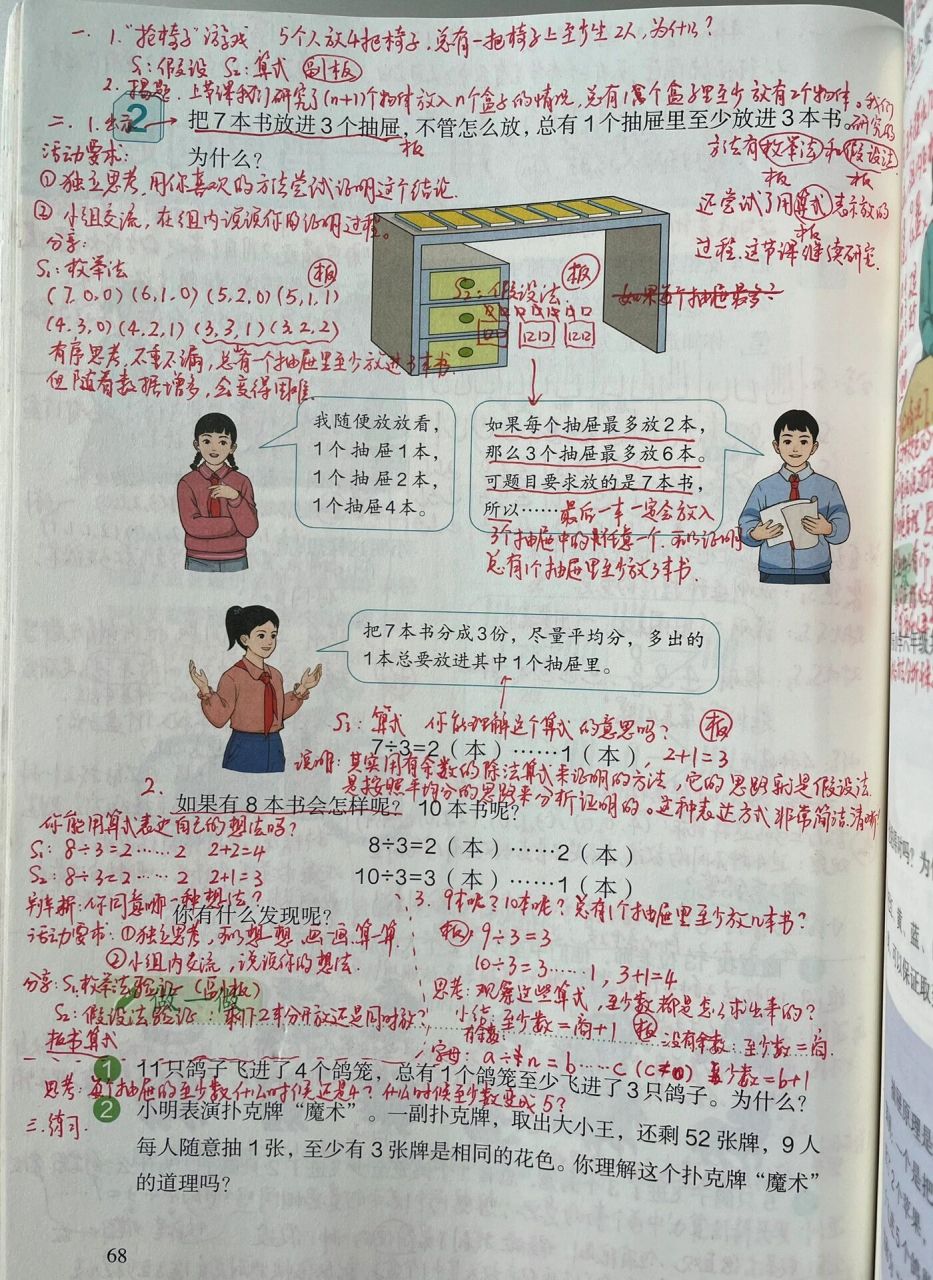 一、1. "抢椅子"游戏 5个人放4把椅子，总有一把椅子上至少坐2人，为什么？
S₁：假设 S₂：算式 副板
2. 揭题：上节课我们研究了(n+1)个物体放入n个盒子的情况，总有1个盒子里至少放有2个物体。我们
研究的
方法有枚举法和假设法
板 板
还尝试了用算式表示放的
板
过程。这节课继续研究。
二、1. 出示
2
把7本书放进3个抽屉，不管怎么放，总有1个抽屉里至少放进3本书。
板
为什么？
活动要求：
①独立思考，用你喜欢的方法尝试证明这个结论。
②小组交流，在组内说说你的证明过程。
分享：
S₁：枚举法 板
(7,0,0)(6,1,0)(5,2,0)(5,1,1)
(4,3,0)(4,2,1)(3,3,1)(3,2,2)
有序思考，不重不漏，总有一个抽屉里至少放进3本书
但随着数据增多，会变得困难。
板
S₂：假设法：
如果每个抽屉最多
我随便放放看，
1个抽屉1本，
1个抽屉2本，
1个抽屉4本。
如果每个抽屉最多放2本，
那么3个抽屉最多放6本。
可题目要求放的是7本书，
所以……最后一本一定会放入
3个抽屉中的任意一个，所以证明
总有1个抽屉里至少放3本书。
把7本书分成3份，尽量平均分，多出的
1本总要放进其中1个抽屉里。
S₃：算式 你能理解这个算式的意思吗？ 板
7÷3=2（本）……1（本），2+1=3
说明：其实用有余数的除法算式来证明的方法，它的思路就是假设法
是按照平均分的思路来分析证明的。这种表达方式非常简洁、清晰
2.
如果有8本书会怎样呢？ 10本书呢？
你能用算式表达自己的想法吗？
S₁：8÷3=2……2 2+2=4
S₂：8÷3=2……2 2+1=3
8÷3=2（本）……2（本）
10÷3=3（本）……1（本）
辨析：你同意哪一种想法？
你有什么发现呢？
活动要求：①独立思考，可以想想，画画，算一算
②小组内交流，说说你的想法.
分享：S₁：枚举法验证（副板）
S₂：假设法验证：剩下2本分开放还是同时放？
板书算式
3. 9本呢？10本呢？总有1个抽屉里至少放几本书？
板：9÷3=3
10÷3=3……1，3+1=4
思考：观察这些算式，至少数都是怎么求出来的？
小结：
有余数：至少数=商+1 板 没有余数：至少数=商.
字母：a÷n=b……c（c≠0）至少数=b+1
做一做
1 11只鸽子飞进了4个鸽笼，总有1个鸽笼至少飞进了3只鸽子。为什么？
思考：每个抽屉的至少数什么时候还是4？什么时候至少数变成5？
三、练习.
2 小明表演扑克牌“魔术”。一副扑克牌，取出大小王，还剩52张牌，9人
每人随意抽1张，至少有3张牌是相同的花色。你理解这个扑克牌“魔术”
的道理吗？
68